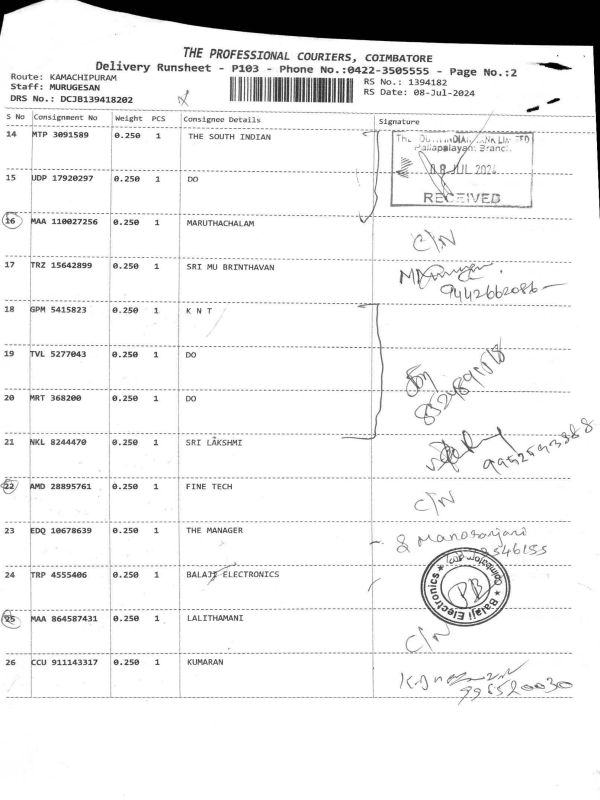 THE PROFESSIONAL COURIERS, COIMBATORE
Delivery Runsheet - P103 - Phone No.:0422-3505555 - Page No.:2
Route: KAMACHIPURAM
RS No.: 1394182
Staff: MURUGESAN
RS Date: 08-Jul-2024
DRS No.: DCJB139418202
S No Consignment No Weight PCS Consignee Details Signature
14 MTP 3091589 0.250 1 THE SOUTH INDIAN
THE SOUTH INDIAN BANK LIMITED
Branch.
08 JUL 2024
RECEIVED
15 UDP 17920297 0.250 1 DO
16 MAA 110027256 0.250 1 MARUTHACHALAM
C/N
17 TRZ 15642899 0.250 1 SRI MU BRINTHAVAN
9442662086
18 GPM 5415823 0.250 1 K N T
19 TVL 5277043 0.250 1 DO
20 MRT 368200 0.250 1 DO
21 NKL 8244470 0.250 1 SRI LAKSHMI
9952593888
22 AMD 28895761 0.250 1 FINE TECH
C/N
23 EDQ 10678639 0.250 1 THE MANAGER
S Manoranjani
24 TRP 4555406 0.250 1 BALAJI ELECTRONICS
Balaji Electronics
PB
25 MAA 864587431 0.250 1 LALITHAMANI
C/N
26 CCU 911143317 0.250 1 KUMARAN